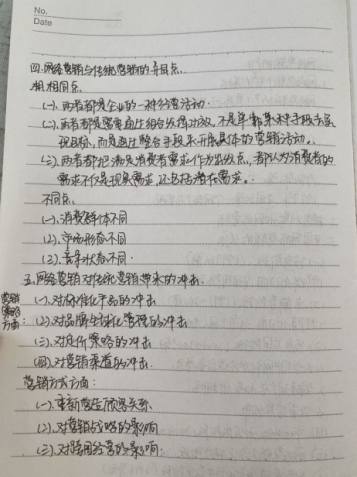 No.
Date
四.网络营销与传统营销的异同点.
相同点.
(一).两者都是企业的一种经营活动.
(二).两者都需要通过组合发挥功效,不是单靠某种手段去实
现目标,而是通过整合手段来开展具体的营销活动.
(三).两者都把满足消费者需求作为出发点,都认为消费者的
需求不仅是现实需求,还包括潜在需求.
不同点.
(一).消费群体不同
(二).市场形态不同
(三).竞争状态不同.
五.网络营销对传统营销带来的冲击.
营销
策略
方面:
(一).对标准化产品的冲击
(二).对品牌全球化管理的冲击
(三).对定价策略的冲击
(四).对营销渠道的冲击.
营销方式方面:
(一).重新营造顾客关系.
(二).对营销战略的影响
(三).对跨国经营的影响.